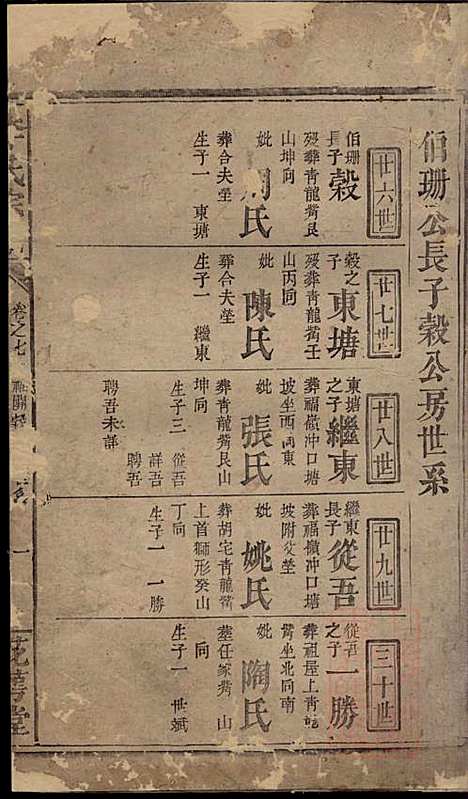 伯珊公長子穀公房世系
廿六世
伯珊長子 穀
殁葬青龍嘴艮
山坤向
妣 周氏
葬合夫塋
生子一 東塘
廿七世
穀之子 東塘
殁葬青龍嘴壬
山丙向
妣 陳氏
葬合夫塋
生子一 繼東
廿八世
東塘之子 繼東
葬福嶺冲口塘
坡坐西向東
妣 張氏
葬青龍嘴艮山
坤向
生子三 從吾
詳吾 聘吾
聘吾未詳
廿九世
繼東長子 從吾
葬福嶺冲口塘
坡附父塋
妣 姚氏
葬胡宅青龍嘴
上首獅形癸山
丁向
生子一 一勝
三十世
從吾之子 一勝
葬祖屋上青龍
嘴坐北向南
妣 陶氏
塋任家嘴 山
向
生子一 世斌
氏宗
卷之七
一
堂